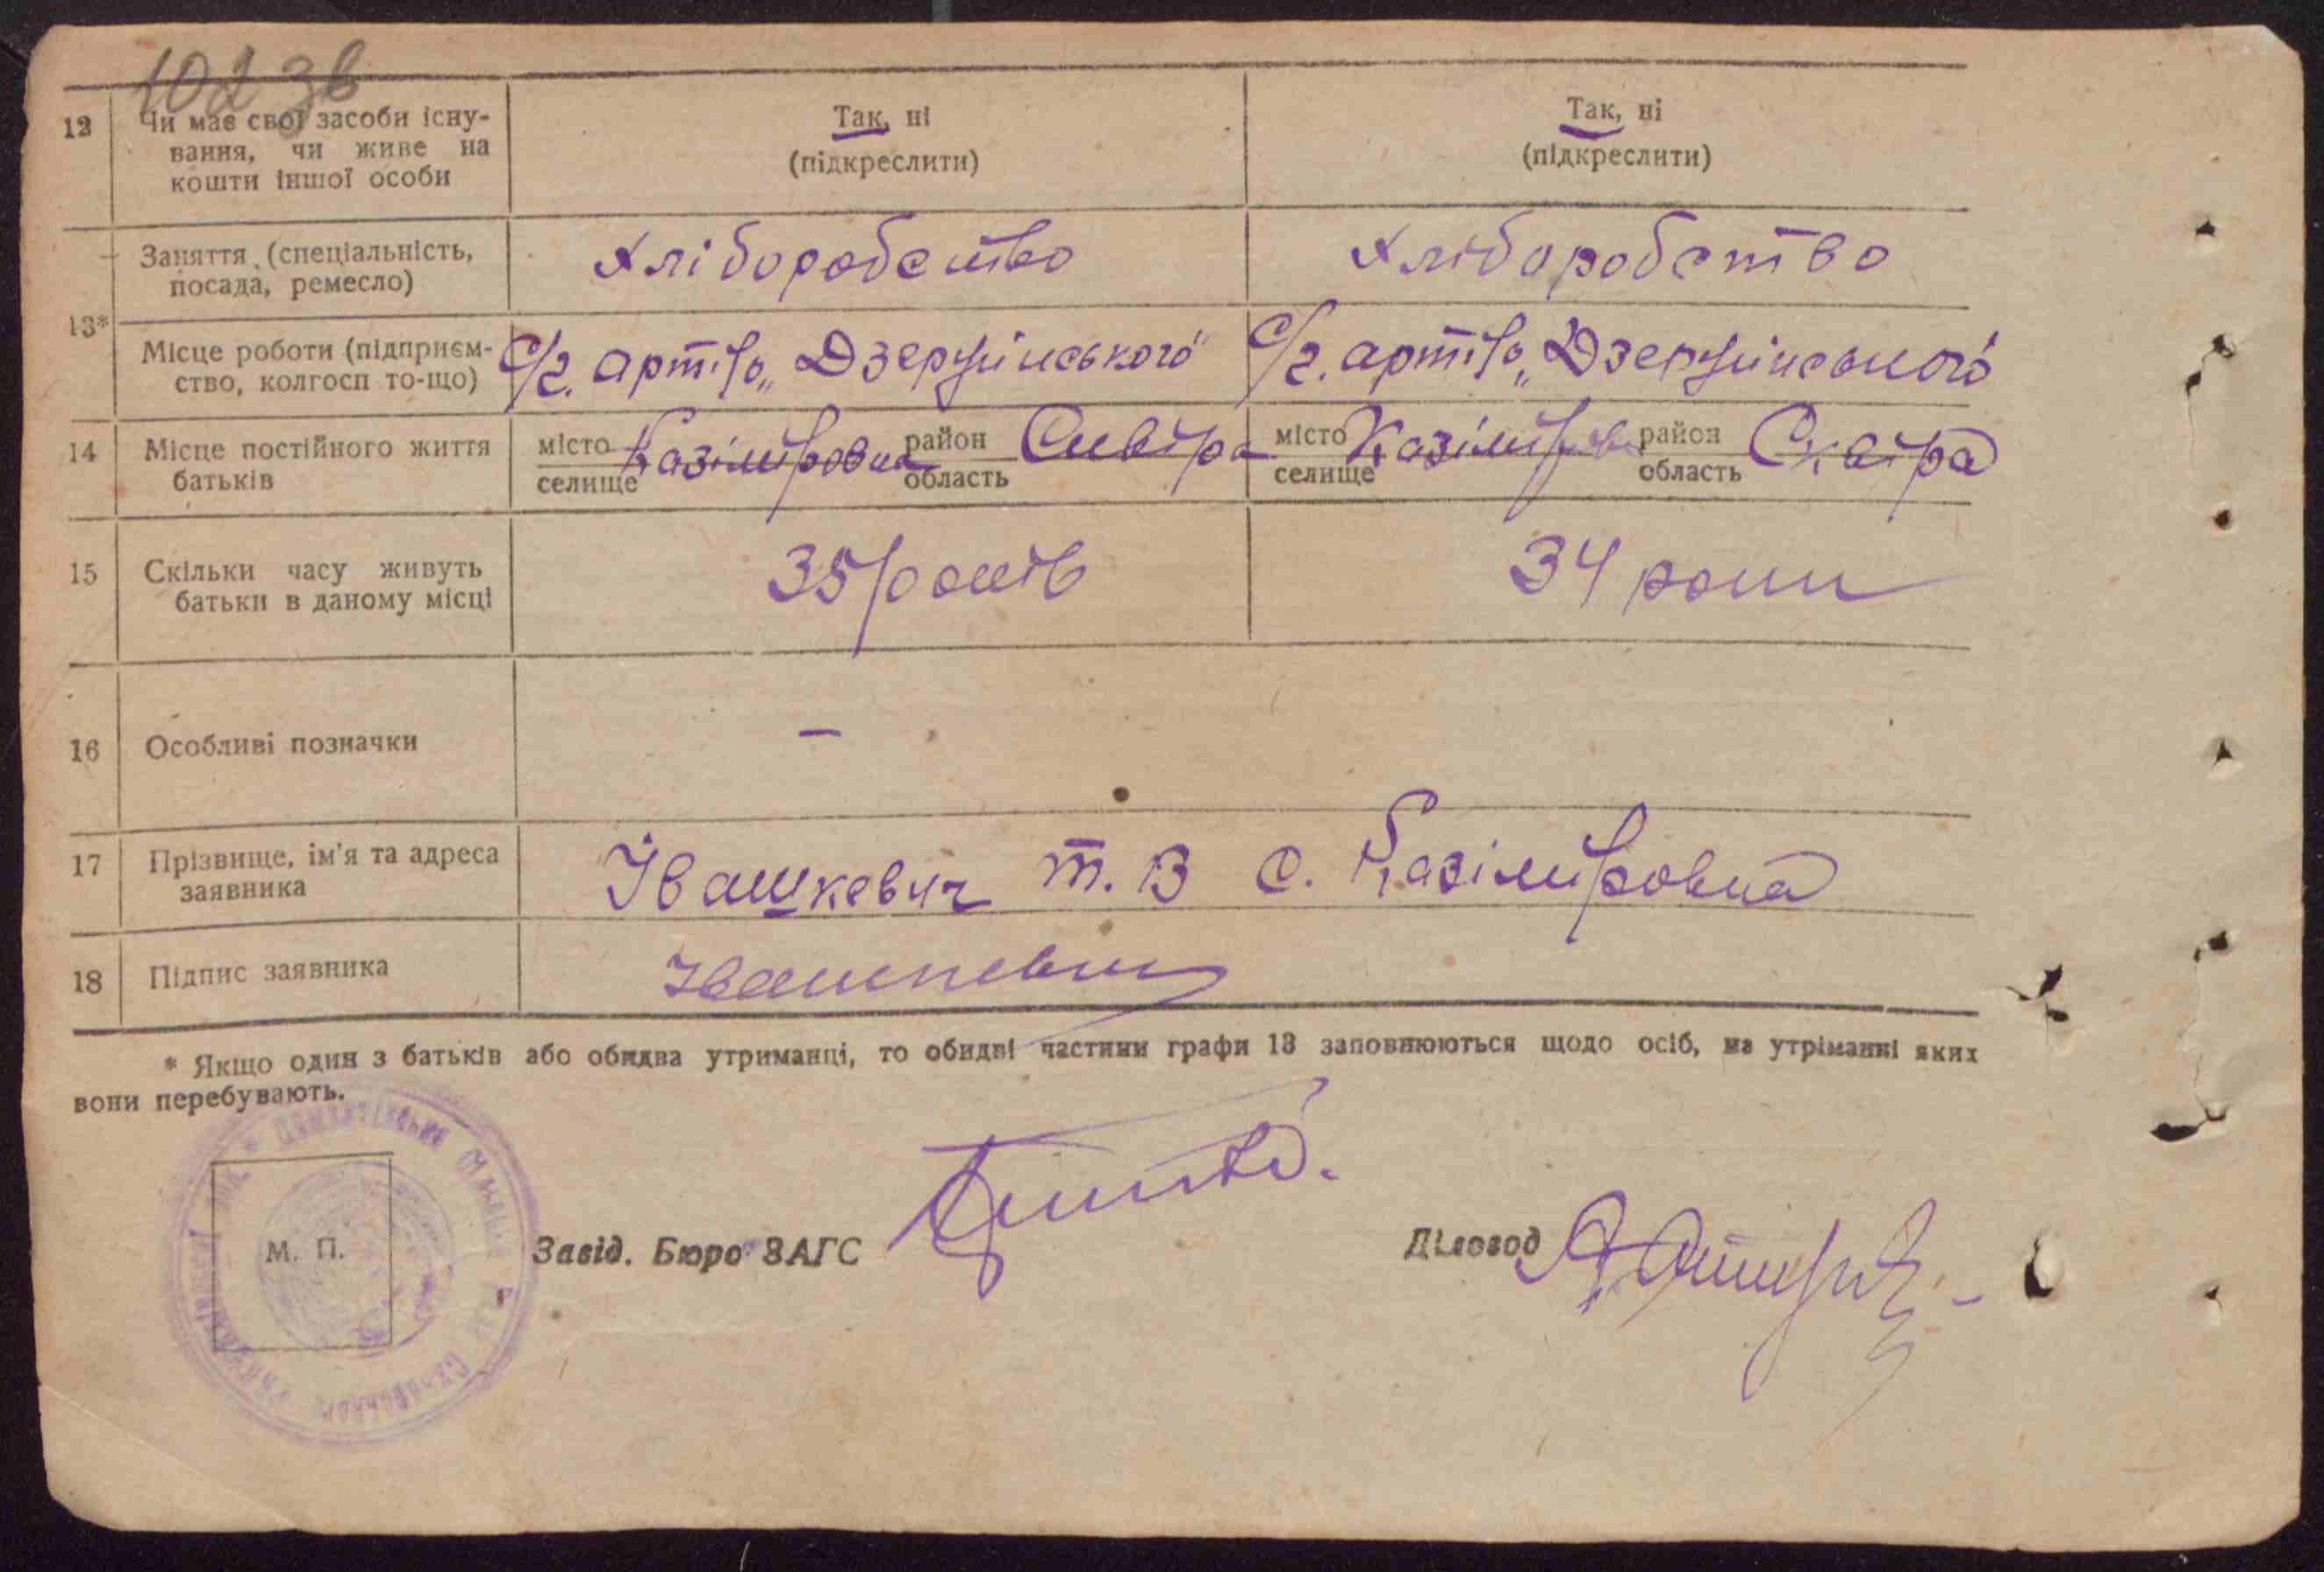 102 зв
12 Чи має свої засоби існу-
вання, чи живе на
кошти іншої особи
Так, ні
(підкреслити)
Так, ні
(підкреслити)
13*
Заняття (спеціальність,
посада, ремесло)
Хліборобство
Хліборобство
Місце роботи (підприєм-
ство, колгосп то-що)
С/г. артіль „Дзержинського"
С/г. артіль „Дзержинського"
14 Місце постійного життя
батьків
місто
селище
Казіміровка
район
область
Сквіра
місто
селище
Казіміровка
район
область
Сквіра
15 Скільки часу живуть
батьки в даному місці
35 років
34 роки
16 Особливі позначки
–
17 Прізвище, ім'я та адреса
заявника
Івашкевич Т. В с. Казіміровка
18 Підпис заявника
Івашкевич
* Якщо один з батьків або обидва утриманці, то обидві частини графи 13 заповнюються щодо осіб, на утріманні яких
вони перебувають.
М. П.
Завід. Бюро ЗАГС
Діловод